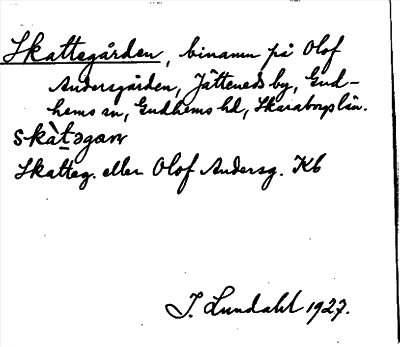 Skattegården, binamn på Olof
Andersgården, Jätteneds by, Gud-
hems sn, Gudhems hd, Skaraborgs län.
skàt̲əgaɳ
Skatteg. eller Olof Andersg. Kb
J. Lundahl 1927.